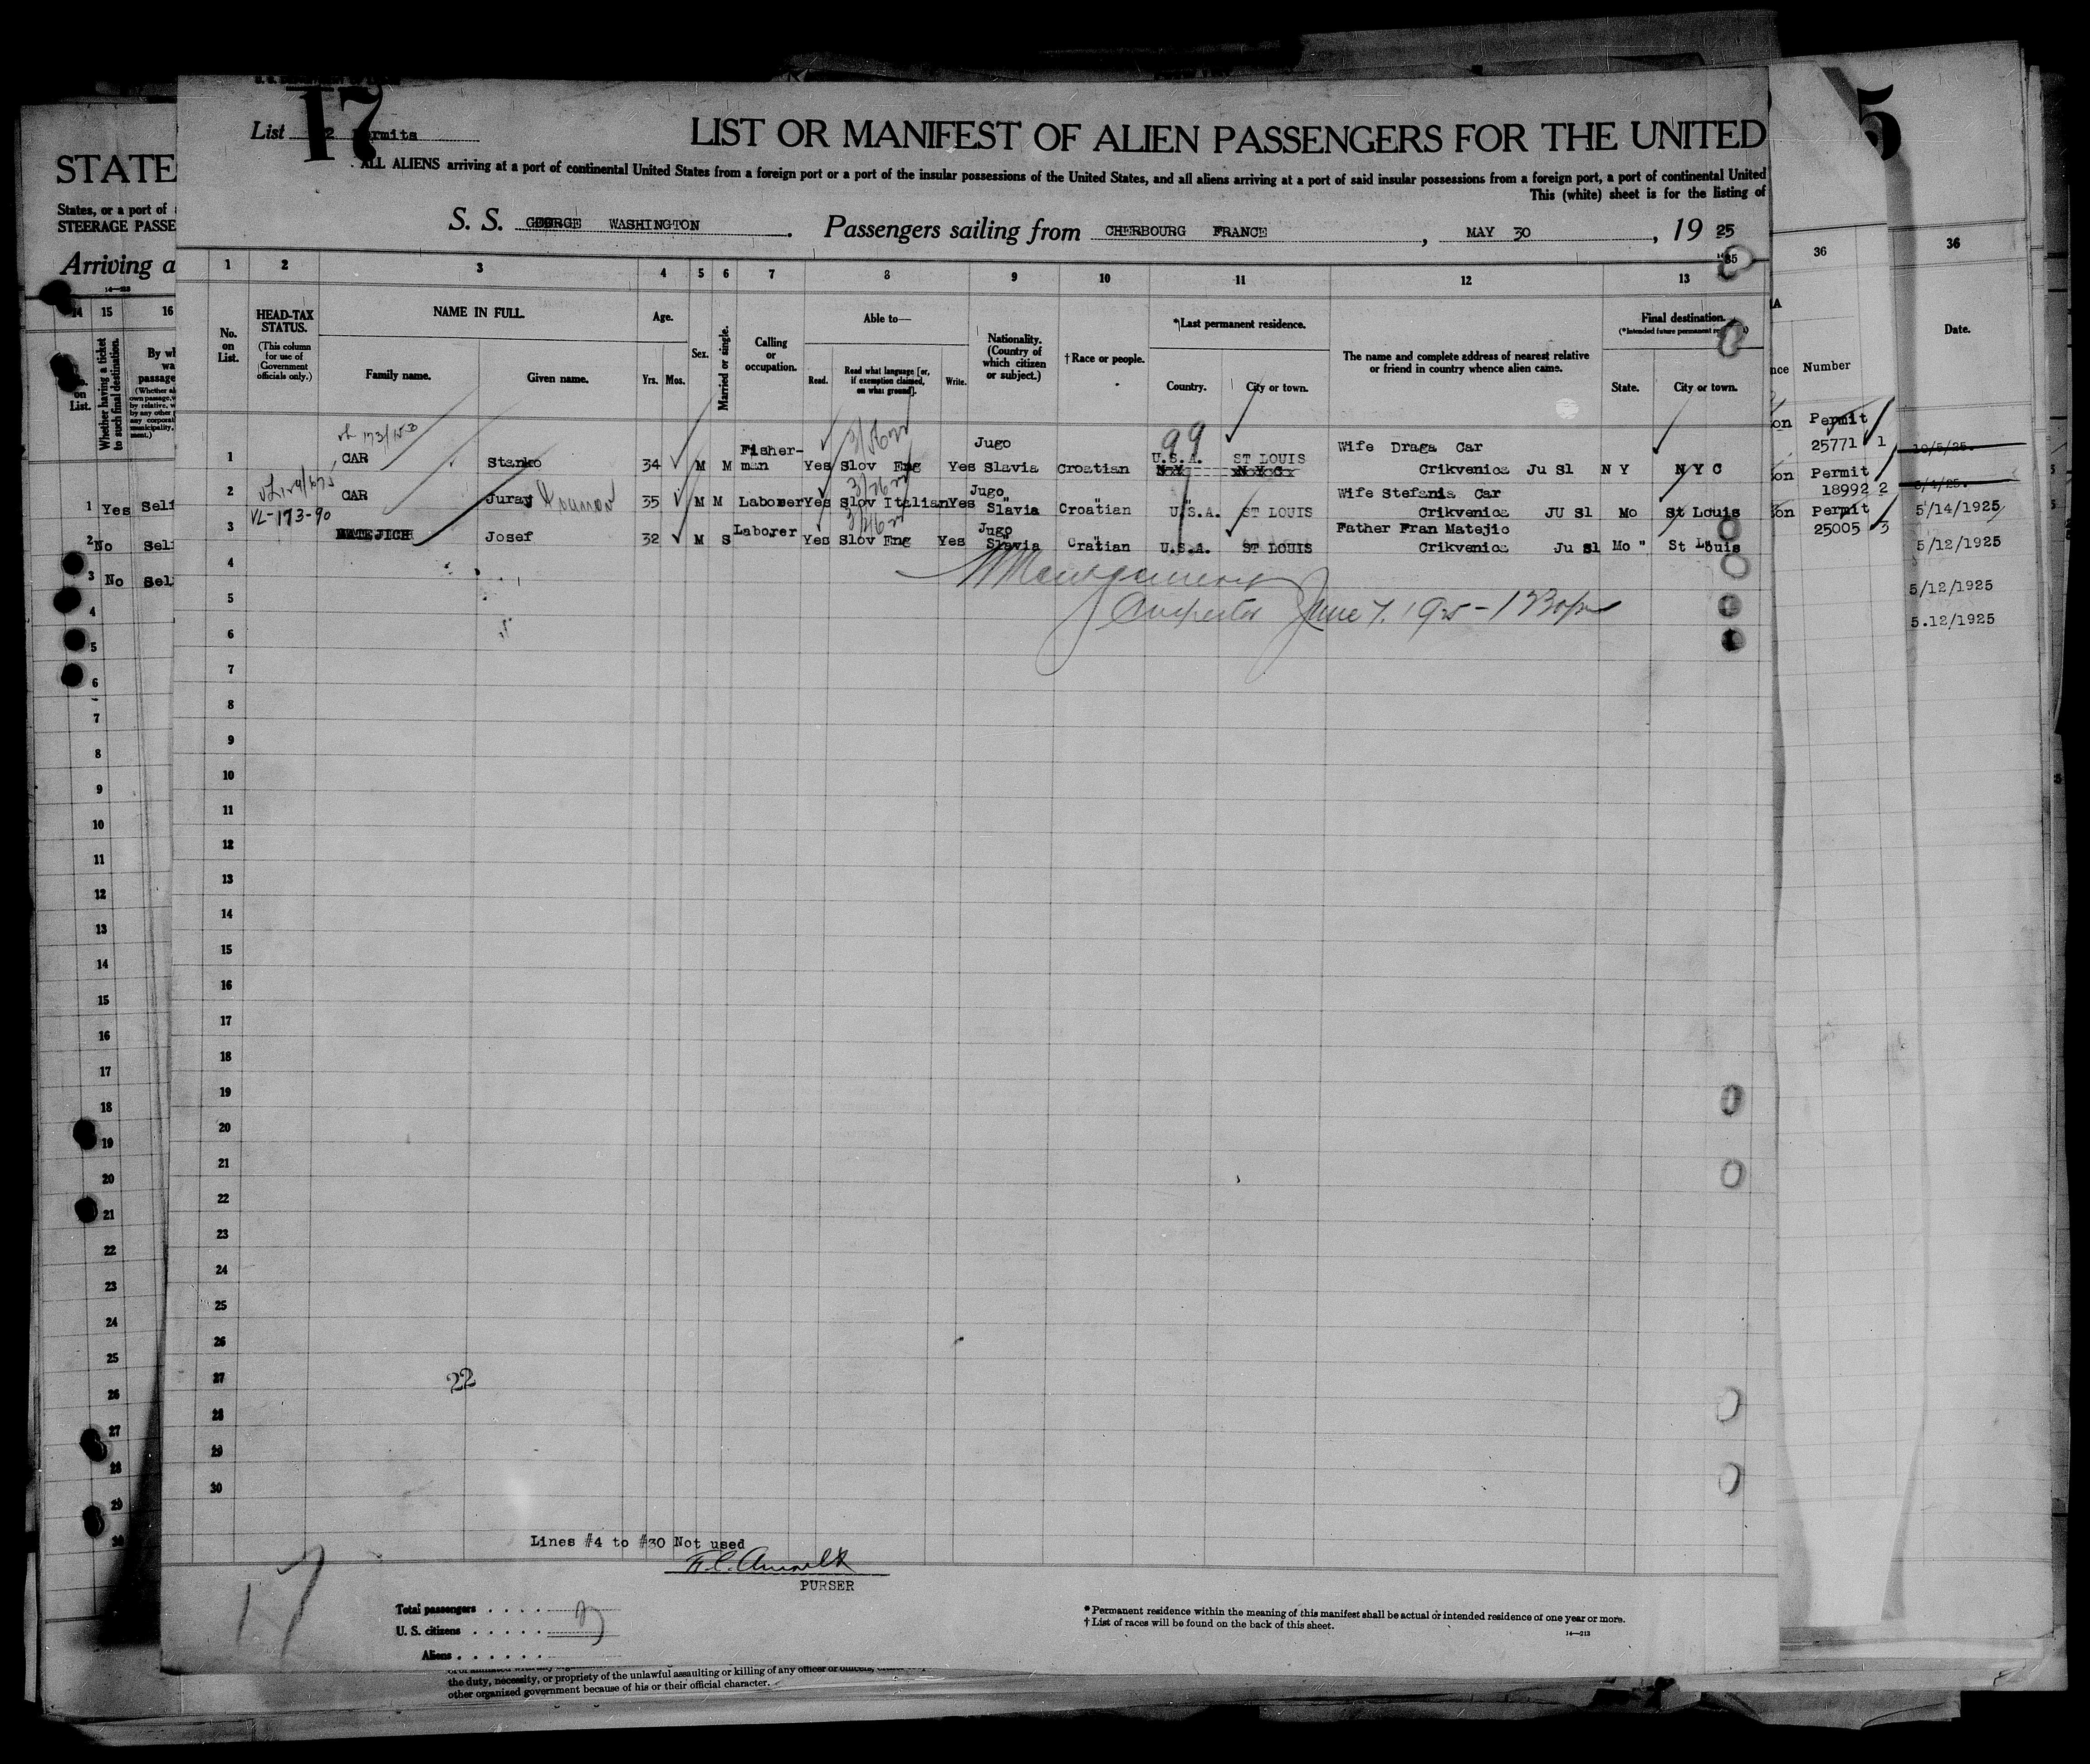 17
5
List 2 Permits
LIST OR MANIFEST OF ALIEN PASSENGERS FOR THE UNITED
STATE
ALL ALIENS arriving at a port of continental United States from a foreign port or a port of the insular possessions of the United States, and all aliens arriving at a port of said insular possessions from a foreign port, a port of continental United
States, or a port of
This (white) sheet is for the listing of
STEERAGE PASSE
S. S. GEORGE WASHINGTON. Passengers sailing from CHERBOURG FRANCE, MAY 30, 1925
Arriving a
1 2 3 4 5 6 7 8 9 10 11 12 13
36 36
14 15 16
No. on List.
HEAD-TAX STATUS.
(This column for use of Government officials only.)
NAME IN FULL.
Family name.
Given name.
Age.
Yrs. Mos.
Sex.
Married or single.
Calling or occupation.
Able to—
Read.
Read what language [or, if exemption claimed, on what ground].
Write.
Nationality. (Country of which citizen or subject.)
†Race or people.
*Last permanent residence.
Country.
City or town.
The name and complete address of nearest relative or friend in country whence alien came.
Final destination.
State.
City or town.
Number
Date.
Whether having a ticket to such final destination.
1 CAR Stanko 34 M M Fisher-man Yes Slov Eng Yes Jugo Slavia Croatian U.S.A. ST LOUIS Wife Draga Car Crikvenica Ju Sl N Y N Y C
99
2 CAR Juraj 35 M M Laborer Yes Slov Italian Yes Jugo Slavia Croatian U.S.A. ST LOUIS Wife Stefania Car Crikvenica JU Sl Mo St Louis
VL-173-90
3 MATEJICH Josef 32 M S Laborer Yes Slov Eng Yes Jugo Slavia Cratian U.S.A. ST LOUIS Father Fran Matejic Crikvenica Ju Sl Mo " St Louis
Permit 25771 1
Permit 18992 2
Permit 25005 3
10/5/25.
5/14/1925
5/12/1925
5/12/1925
5.12/1925
1 Yes Self
2 No Self
3 No Self
Montgomery
Inspector June 7. 1925 - 130pm
4
5
6
7
8
9
10
11
12
13
14
15
16
17
18
19
20
21
22
23
24
25
26
27
28
29
30
22
Lines #4 to #30 Not used
PURSER
17
Total passengers . . . .
U. S. citizens . . . . .
Aliens . . . . . .
* Permanent residence within the meaning of this manifest shall be actual or intended residence of one year or more.
† List of races will be found on the back of this sheet.
14—213
the duty, necessity, or propriety of the unlawful assaulting or killing of any officer or officers,
other organized government because of his or their official character.